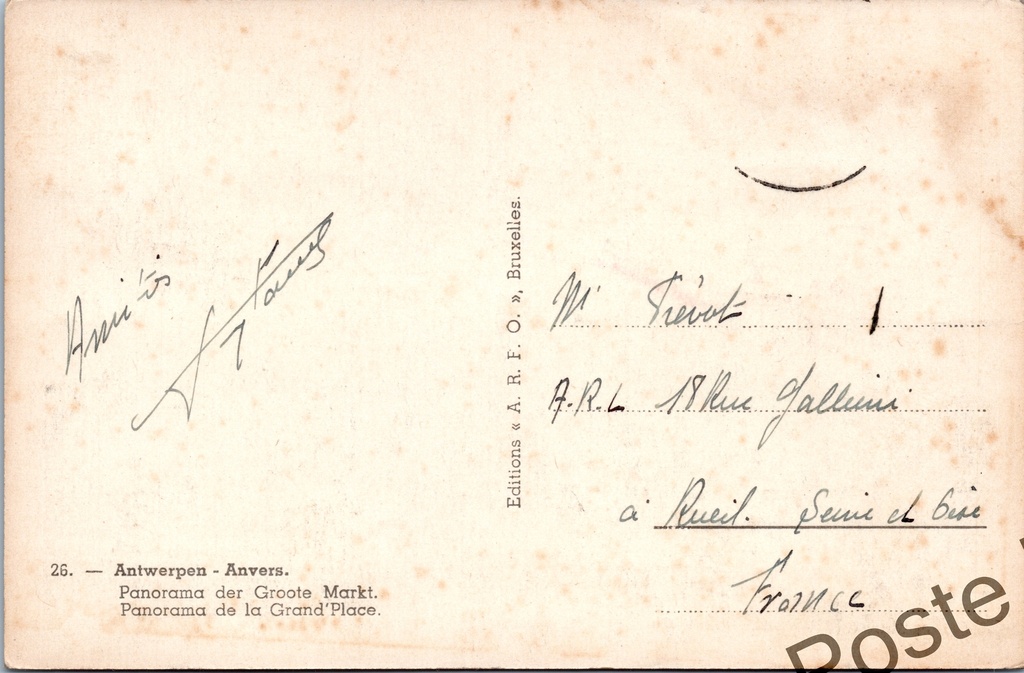 Amitiés
Editions « A. R. F. O. », Bruxelles.
Mr Prévot
A.R.L 18 Rue Gallieni
à Rueil. Seine et Oise
France
26. — Antwerpen - Anvers.
Panorama der Groote Markt.
Panorama de la Grand'Place.
Poste